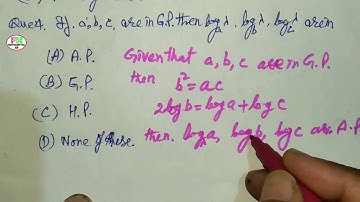 Que4. If. a, b, c, are in G.P. then log_a λ, log_b λ, log_c λ are in
(A) A.P.
(B) G.P.
(C) H.P.
(D) None of these.
Given that a, b, c are in G.P.
then b² = ac
2 log b = log a + log c
then. log_λ a, log b, log c are. A.P.